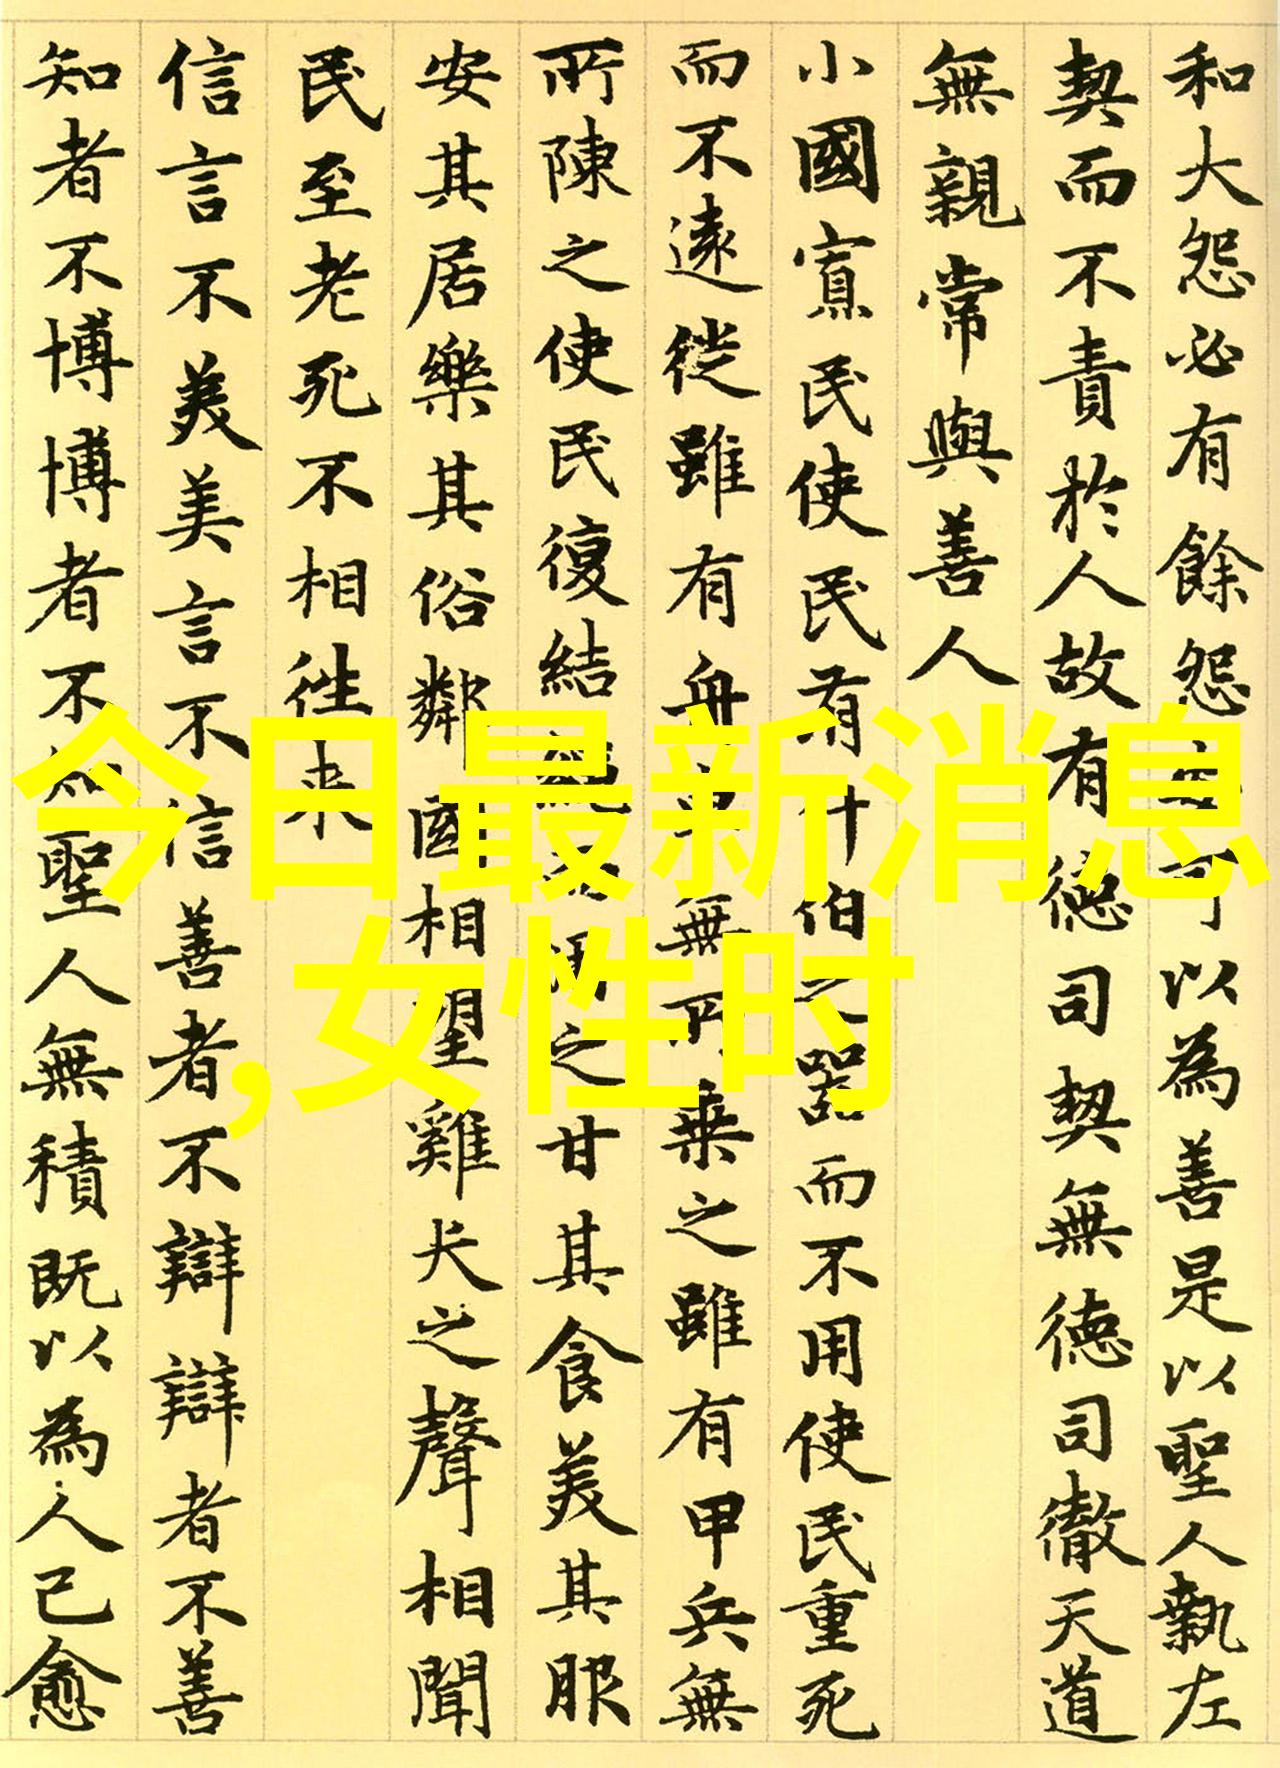 和大怨必有餘怨可以為善是以聖人執左
契而不責於人故有德司契無德司徹天道
無親常與善人
小國寡民使民有什伯之器而不用使民重死
而不遠徙雖有舟無所乗之雖有甲兵無
所陳之使民復結繩之甘其食美其服
安其居樂其俗鄰國相望雞犬之聲相聞
民至老死不相往来
信言不美美言不信善者不辯辯者不善
知者不博博者不知聖人無積既以為人己愈
今日最新消息
,女性时